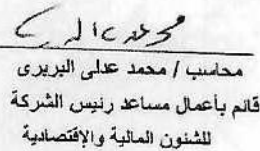 محاسب / محمد عدلى البربرى
قائم بأعمال مساعد رئيس الشركة
للشئون المالية والإقتصادية